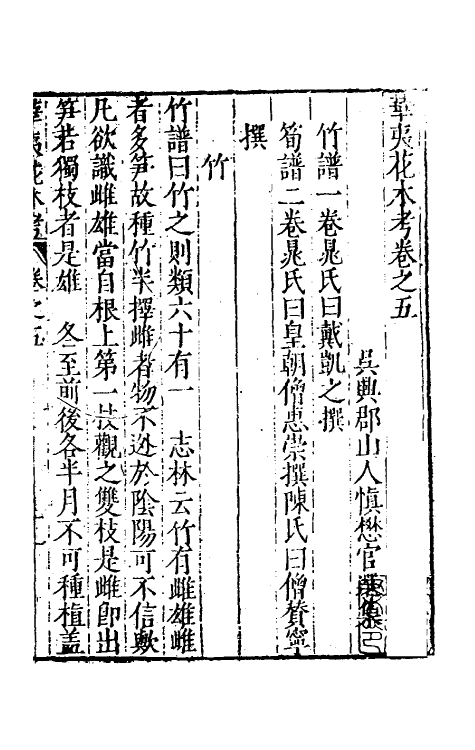 華夷花木考卷之五
吳興郡山人慎懋官選集
竹譜一卷晁氏曰戴凱之撰
筍譜二卷晁氏曰皇朝僧惠崇撰陳氏曰僧贊寧
撰
竹
竹譜曰竹之則類六十有一　志林云竹有雌雄雌
者多笋故種竹半擇雌者物不迯於陰陽可不信歟
凢欲識雌雄當自根上第一枝觀之雙枝是雌即出
笋若獨枝者是雄　冬至前後各半月不可種植蓋
華夷花木考　卷之五